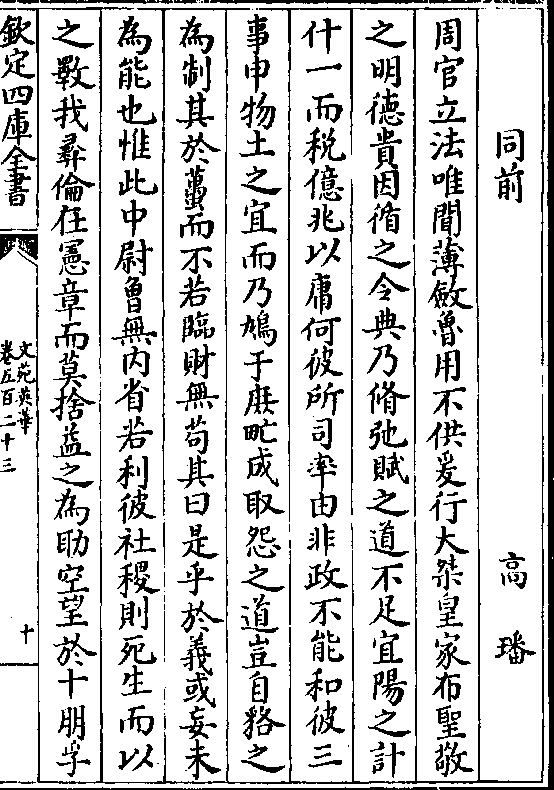 同前　高璠
周官立法唯聞薄斂魯用不供爰行大桀皇家布聖敬
之明德貴因循之令典乃脩弛賦之道不足宜陽之計
什一而税億兆以庸何彼所司率由非政不能和彼三
事申物土之宜而乃鳩于庶甿成取怨之道豈自貉之
為制其於蠆而不若臨財無苟其曰是乎於義或妄未
為能也惟此中尉曾無内省若利彼社稷則死生而以
之斁我彞倫在憲章而莫捨益之為助空望於十朋孚
欽定四庫全書
文苑英華
卷五百二十三
十